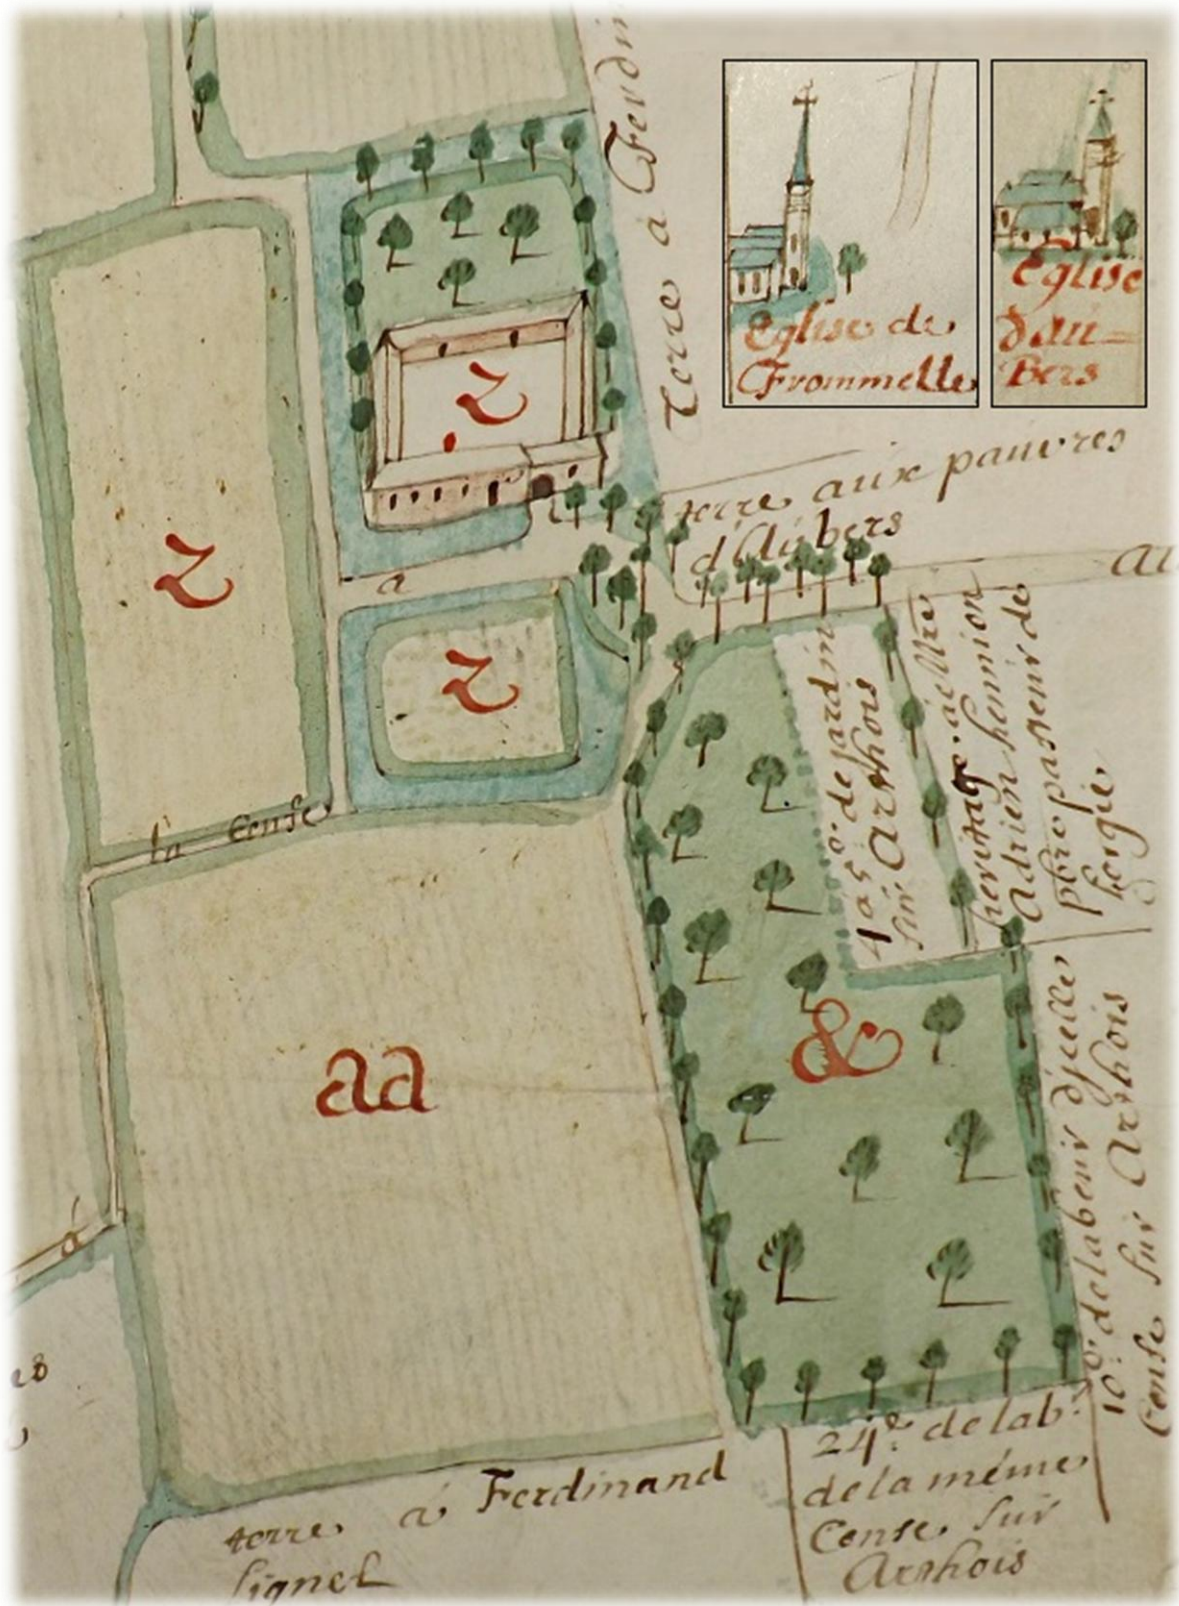 Terre à Ferdin
Eglise de
Frommelle
Eglise
d'Au=
Bers
terre aux pauvres
d'Aubers
Z
Z
a
Z
la Cense
4 a 5 c. de Jardin
sur Arthois
heritage
Adrien hennion
pbre pasteur de
aa
&
à
10 c. delabeur d'jcelle
Cense sur Arthois
24 c. de lab.
dela méme
Cense sur
Arthois
terre à Ferdinand
lignel